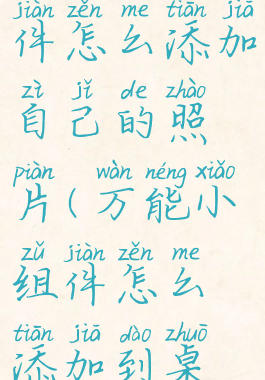 jiàn zěn me tiān jiā
件怎么添加
zì jǐ de zhào
自己的照
piàn wàn néng xiǎo
片(万能小
zǔ jiàn zěn me
组件怎么
tiān jiā dào zhuō
添加到桌